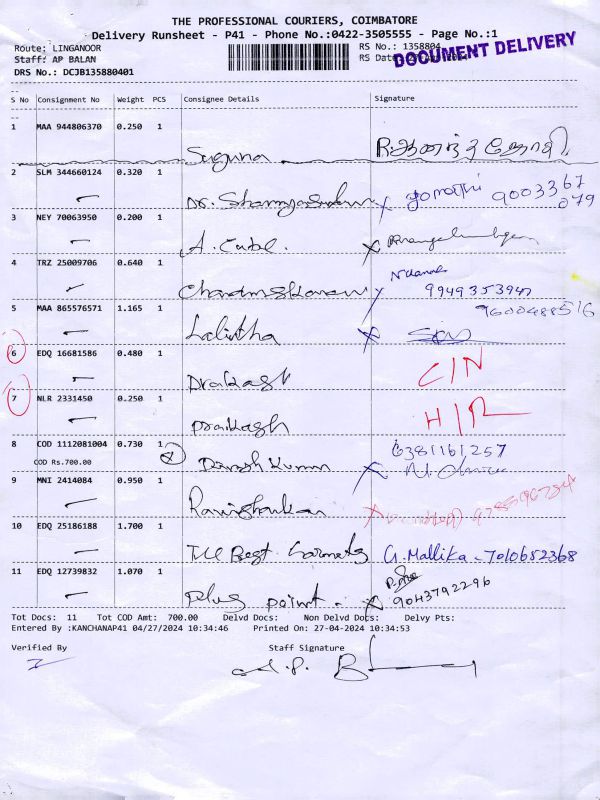 THE PROFESSIONAL COURIERS, COIMBATORE
Delivery Runsheet - P41 - Phone No.:0422-3505555 - Page No.:1
Route: LINGANOOR
Staff: AP BALAN
DRS No.: DCJB135880401
RS No.: 1358804
RS Date
DOCUMENT DELIVERY
S No Consignment No Weight PCS Consignee Details Signature
1 MAA 944806370 0.250 1
Suguna R.ஆனந்த ஜோதி
2 SLM 344660124 0.320 1
Dr. 9003367
079
3 NEY 70063950 0.200 1
A.
4 TRZ 25009706 0.640 1
9949353947
5 MAA 865576571 1.165 1 9600488516
Lalitha
6 EDQ 16681586 0.480 1
Prakash C/N
7 NLR 2331450 0.250 1
Prakash H/R
8 COD 1112081004 0.730 1 6381161257
COD Rs.700.00
Kumar
9 MNI 2414084 0.950 1
Ravishankar
10 EDQ 25186188 1.700 1
The Best G.Mallika - 7010652368
11 EDQ 12739832 1.070 1
Plus point. 9043792296
Tot Docs: 11 Tot COD Amt: 700.00 Delvd Docs: Non Delvd Docs: Delvy Pts:
Entered By :KANCHANAP41 04/27/2024 10:34:46 Printed On: 27-04-2024 10:34:53
Verified By Staff Signature